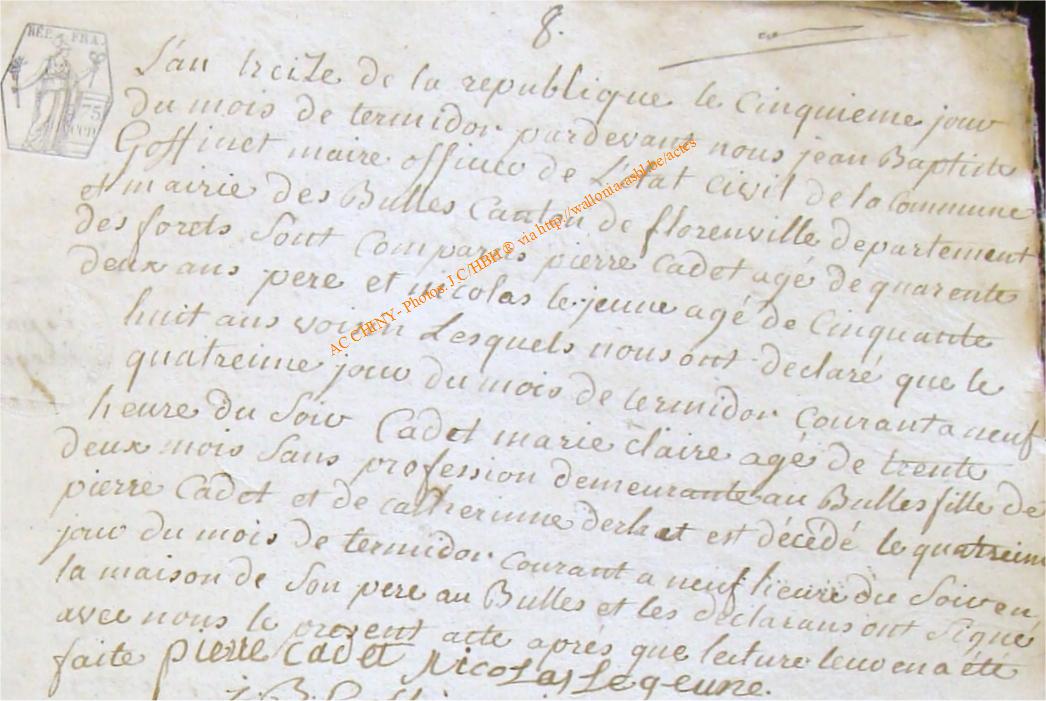 8.
RÉP. FRA.
75
CEN.
L'an treize de la republique le cinquieme jour
du mois de termidor pardevant nous jean Baptiste
Goffinet maire officier de L'etat civil de la Commune
et mairie des Bulles Canton de florenville departement
des forets Sont Comparus pierre Cadet agé de quarente
deux ans pere et nicolas le jeune agé de Cinquante
huit ans voisin Lesquels nous ont declaré que le
quatreime jour du mois de termidor courant a neuf
heure du Soir Cadet marie claire agé de trente
deux mois Sans profession demeurante au Bulles fille de
pierre Cadet et de catherinne est décédé le quatreime
jour du mois de termidor courant a neuf heure du Soir en
la maison de Son pere au Bulles et les declarans ont Signé
avec nous le present acte après que lecture leur en a été
faite pierre cadet Nicolas Legeune.
J. B. Goffinet
AC CHINY- Photos. J.C/HBH ® via http://wallonia-asbl.be/actes